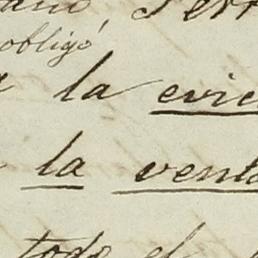 obligó
la evic
la venta
todo el